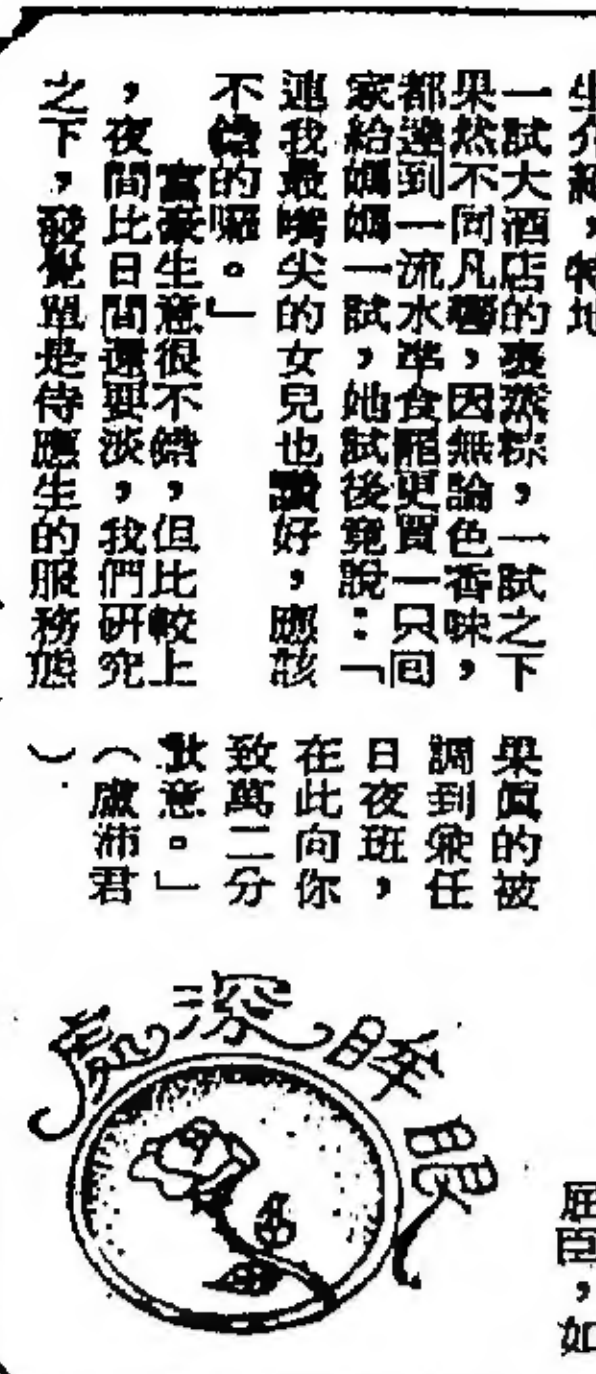 生介紹，特地
一試大酒店的裹蒸粽，一試之下
果然不同凡響，因無論色香味，
都達到一流水準食罷更買一只囘
家給媽媽一試，她試後竟說：「
連我最嘴尖的女兒也讚好，應該
不錯的囉。」
富豪生意很不錯，但比較上
，夜間比日間還要淡，我們研究
之下，發覺單是侍應生的服務態
果眞的被
調到兼任
日夜班，
在此向你
致萬二分
歉意。」
（盧沛君
）
眼眸深處
屈臣，如